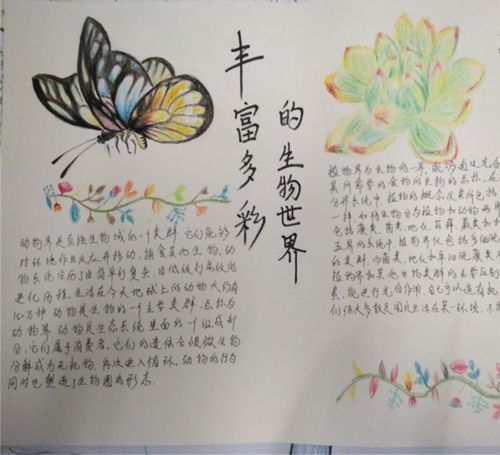 丰富多彩
的生物世界
动物界是真核生物域的一个类群 它们能够
对环境作出反应并移动,捕食其他生物,动
物系统经历了由简单到复杂,由低级到高级的
进化历程,生活在今天地球上的动物大约有
150万种 动物是生物的一个主要类群,总称为
动物界 动物是生态系统里面的一个组成部
分,它们属于消费者,它们的遗体会被微生物
分解成为无机物,再次进入循环,动物的行为
同时也塑造了生物圈的形态.
植物界为生物的一界,能够通过光合
其所需要的食物的生物的总称,在
分界系统中,植物的概念及其所包括
一样 如将生物分为植物和动物两界
包括藻类、菌类、地衣、苔藓、蕨类和
五界的系统中 植物界仅包括多细胞
的类群,而菌类、地衣和单细胞藻类不
植物界和其他生物类群的主要区别
素,能进行光合作用 自己可以造有机
们绝大多数是固定生活在某一环境,不